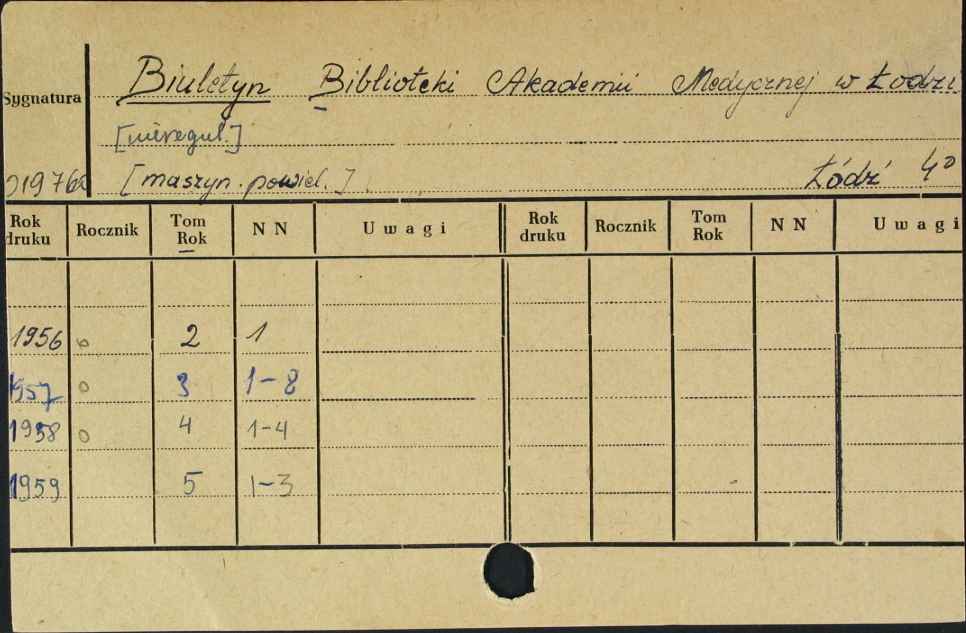 Biuletyn Biblioteki Akademii Medycznej w Łodzi
Sygnatura
[nieregul.]
[maszyn. powiel.] Łódź 4°
Rok druku Rocznik Tom Rok N N Uwagi Rok druku Rocznik Tom Rok N N Uwagi
1956 0 2 1
1957 0 3 1-8
1958 0 4 1-4
1959 5 1-3